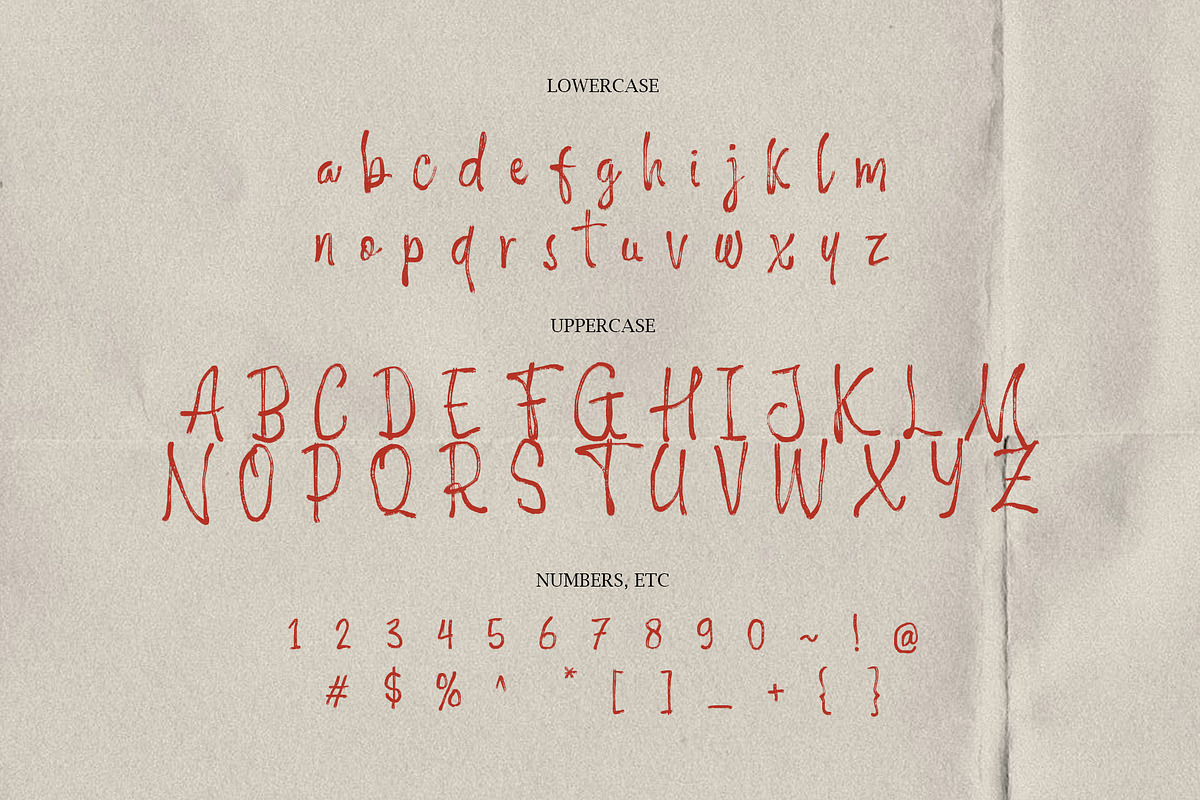 LOWERCASE
a b c d e f g h i j k l m
n o p q r s t u v w x y z
UPPERCASE
A B C D E F G H I J K L M
N O P Q R S T U V W X Y Z
NUMBERS, ETC
1 2 3 4 5 6 7 8 9 0 ~ ! @
# $ % ^ * [ ] _ + { }